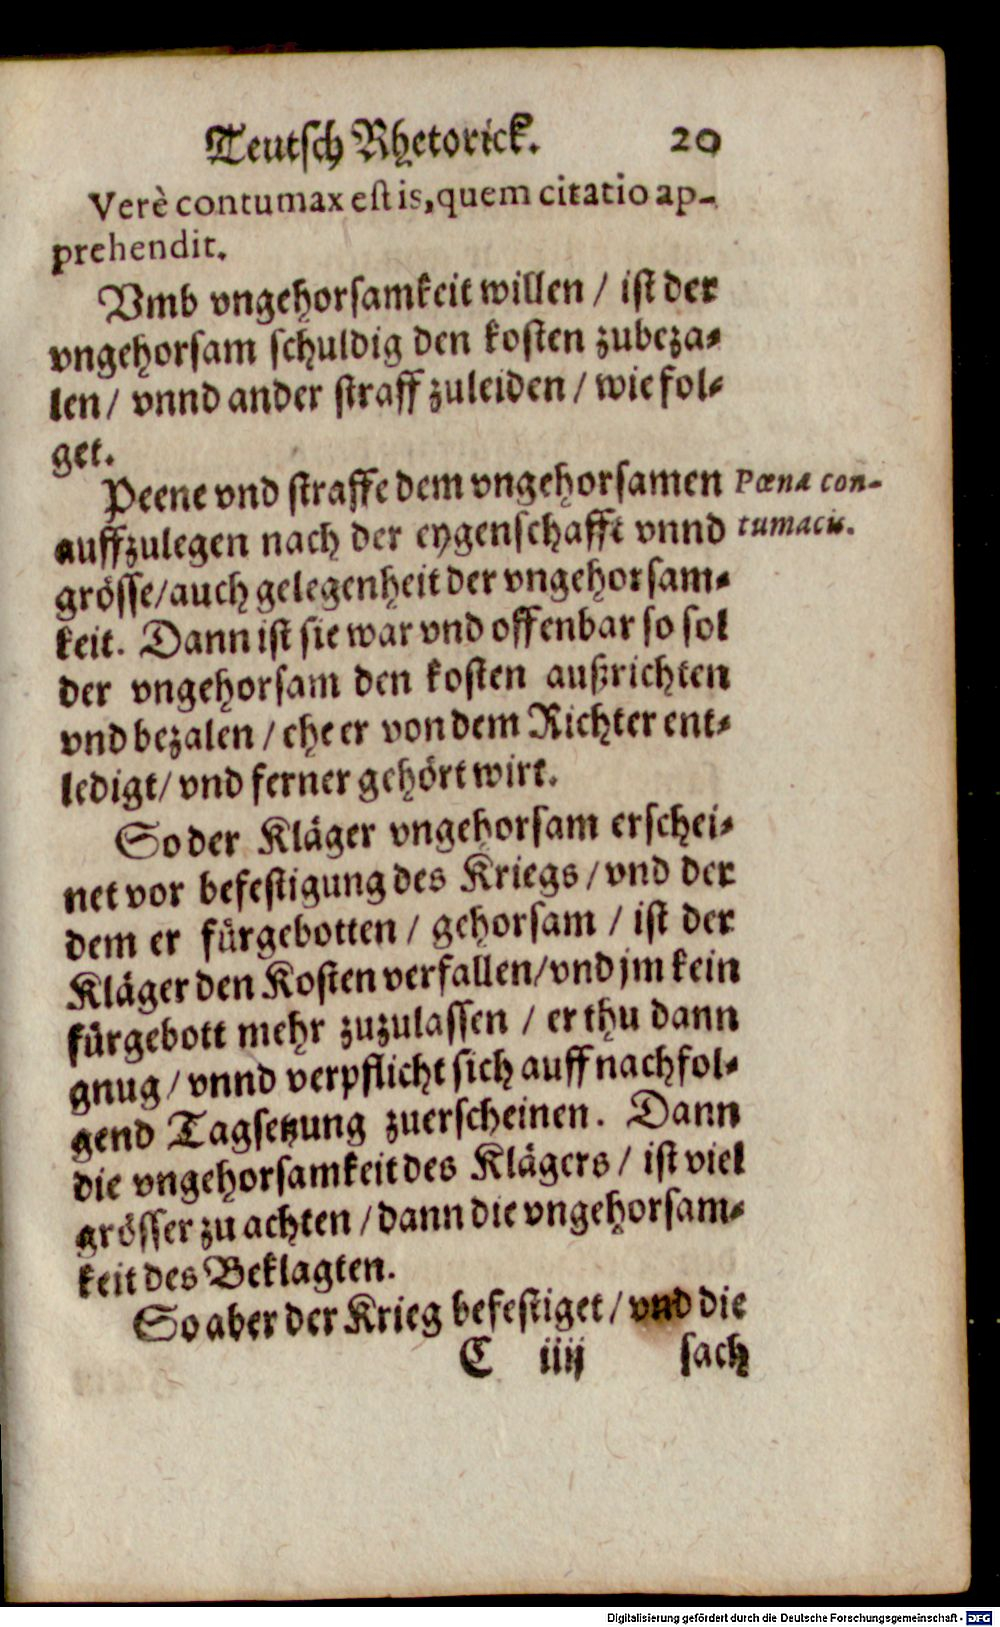 Teutsch Rhetorick. 20
Verè contumax est is, quem citatio ap-
prehendit.
Vmb vngehorsamkeit willen / ist der
vngehorsam schuldig den kosten zubeza-
len / vnnd ander straff zuleiden / wie fol-
get.
Peene vnd straffe dem vngehorsamen
Pœna con-
auffzulegen nach der eygenschafft vnnd
tumacis.
grösse/auch gelegenheit der vngehorsam-
keit. Dann ist sie war vnd offenbar so sol
der vngehorsam den kosten außrichten
vnd bezalen / ehe er von dem Richter ent-
ledigt/ vnd ferner gehört wirt.
So der Kläger vngehorsam erschei-
net vor befestigung des Kriegs / vnd der
dem er fürgebotten / gehorsam / ist der
Kläger den Kosten verfallen/vnd jm kein
fürgebott mehr zuzulassen / er thu dann
gnug / vnnd verpflicht sich auff nachfol-
gend Tagsetzung zuerscheinen. Dann
die vngehorsamkeit des Klägers / ist viel
grösser zu achten / dann die vngehorsam-
keit des Beklagten.
So aber der Krieg befestiget / vnd die
C iiij sach
Digitalisierung gefördert durch die Deutsche Forschungsgemeinschaft - DFG